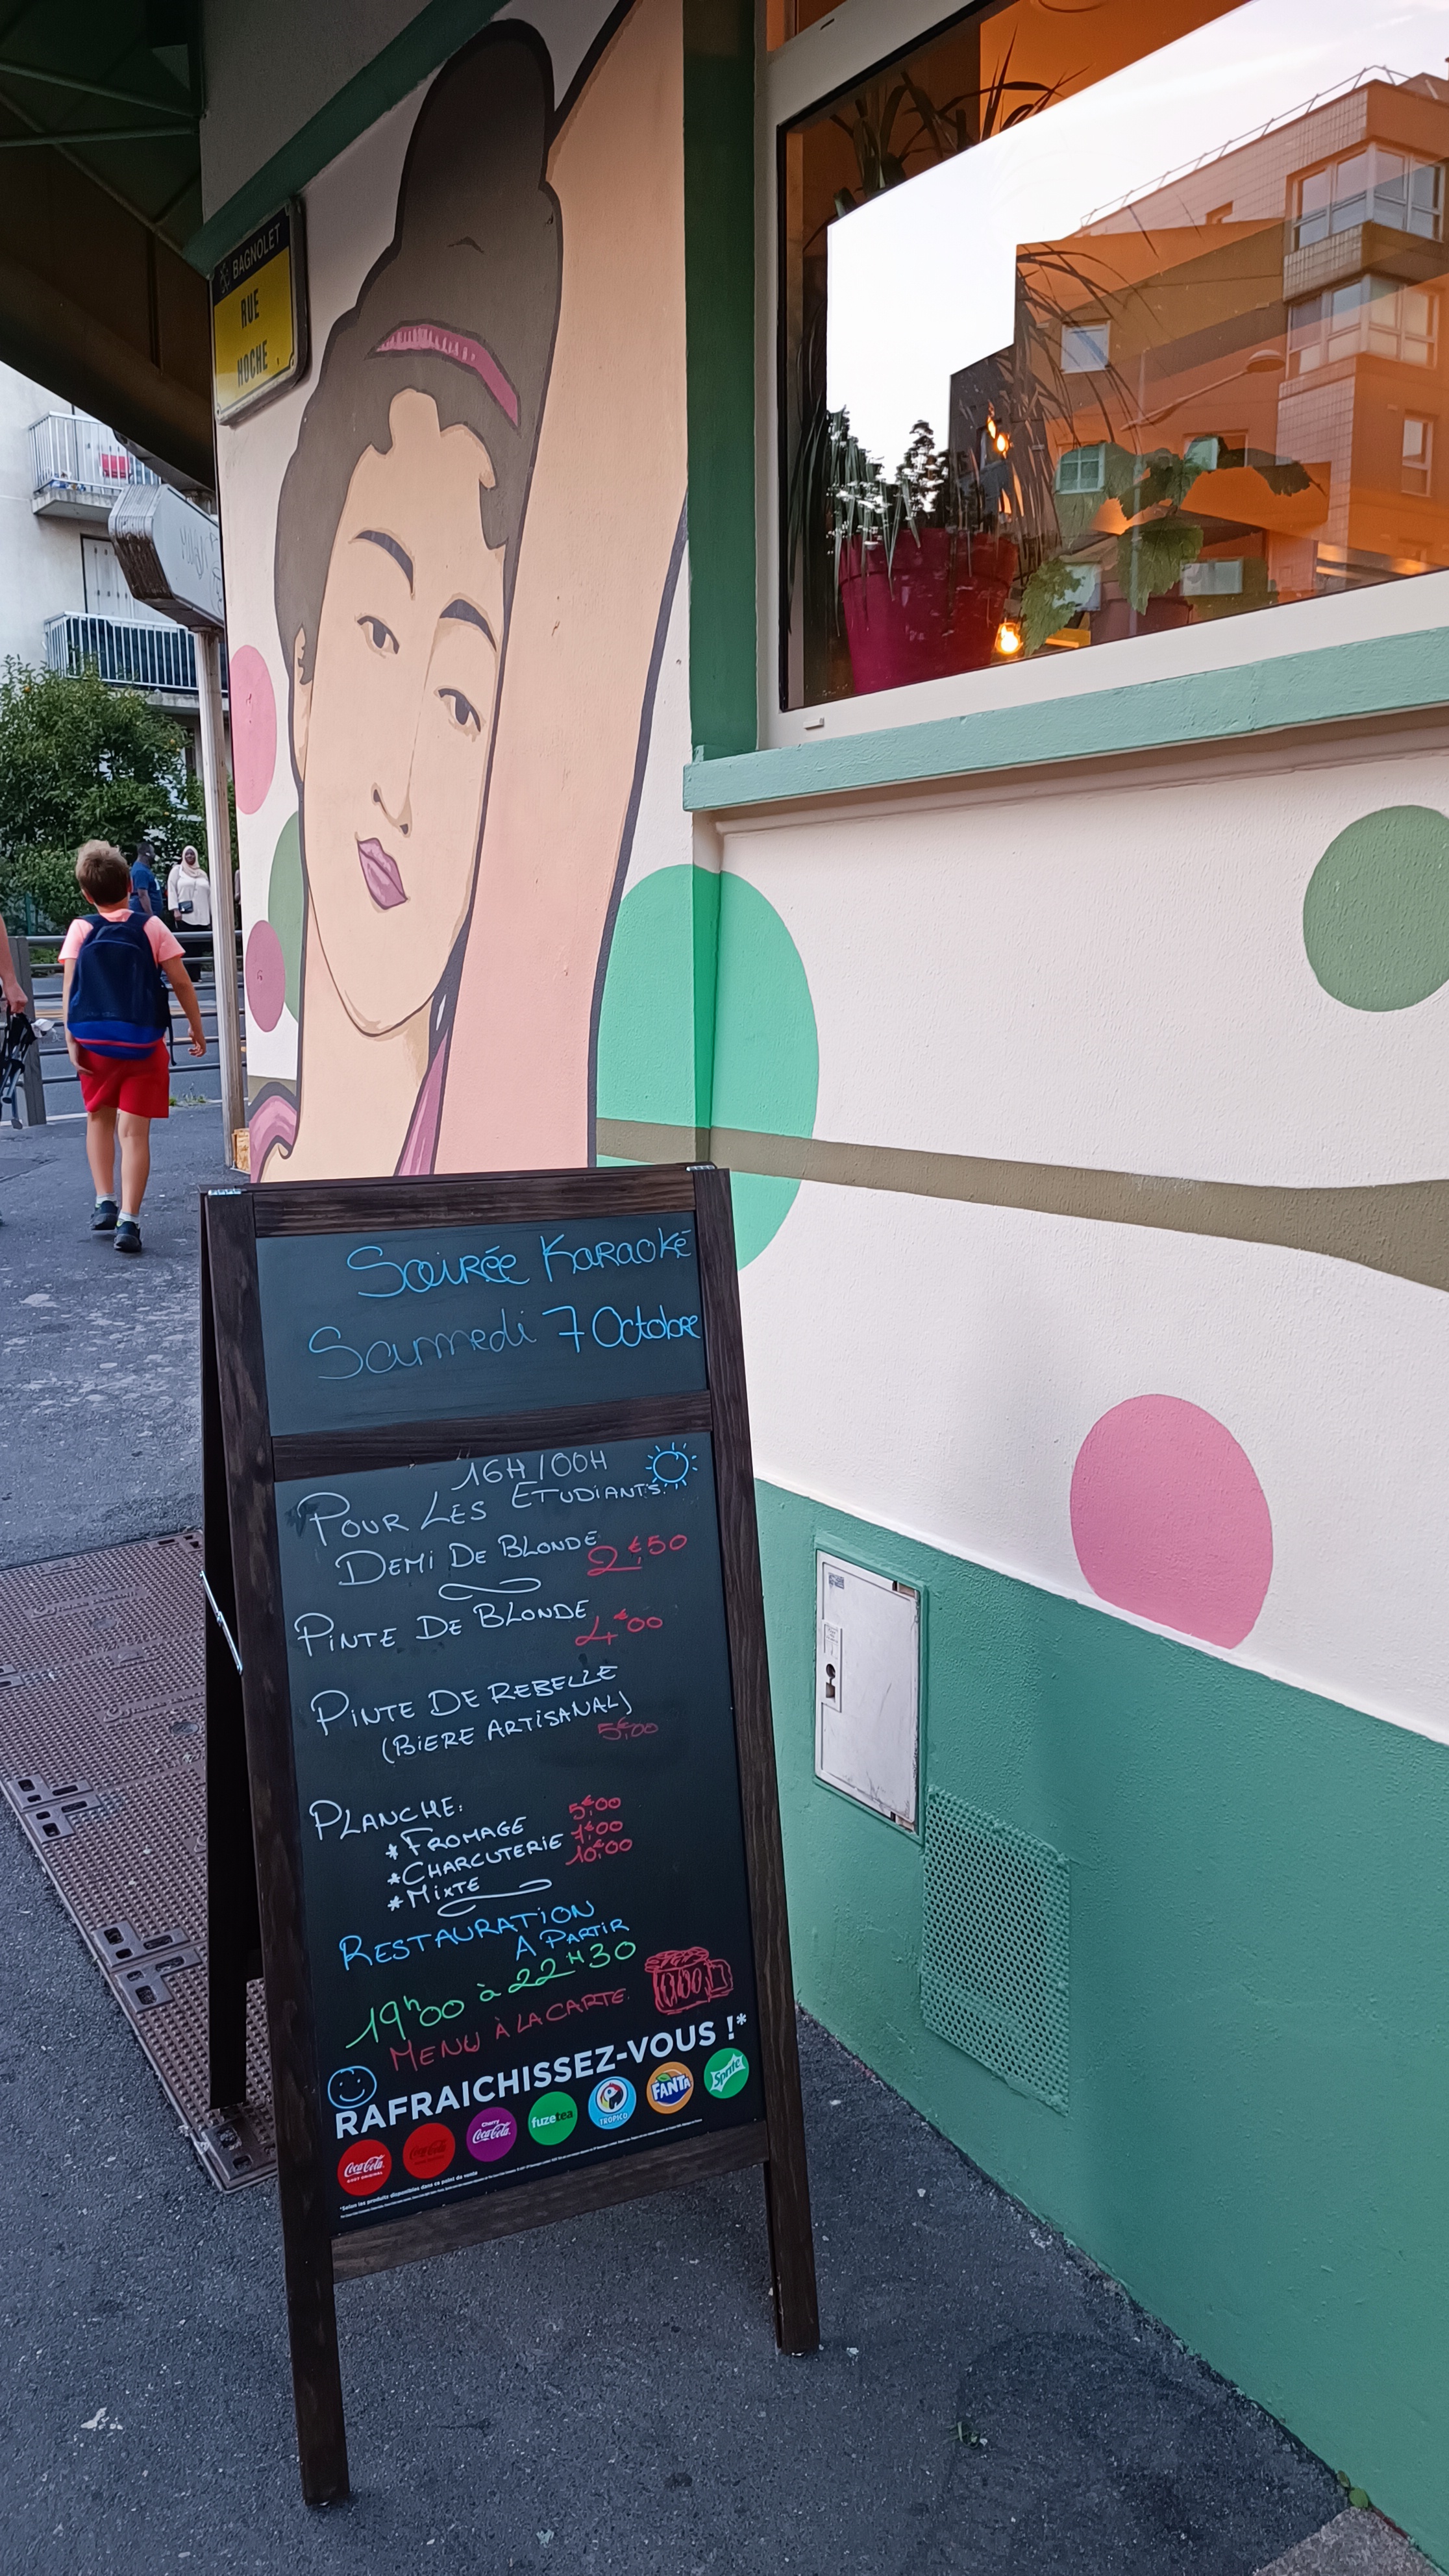 BAGNOLET
RUE
HOCHE
Soirée Karaoké
Samedi 7 Octobre
16H/00H
POUR LES ETUDIANTS
DEMI DE BLONDE 2€50
PINTE DE BLONDE 4€00
PINTE DE REBELLE
(BIERE ARTISANAL) 5€00
PLANCHE:
*FROMAGE 5€00
*CHARCUTERIE 7€00
*MIXTE 10€00
RESTAURATION
A PARTIR
19h00 à 22H30
MENU À LA CARTE
RAFRAICHISSEZ-VOUS !*
Coca-Cola Coca-Cola Cherry Coca-Cola fuzetea TROPICO FANTA Sprite
*Selon les produits disponibles dans ce point de vente